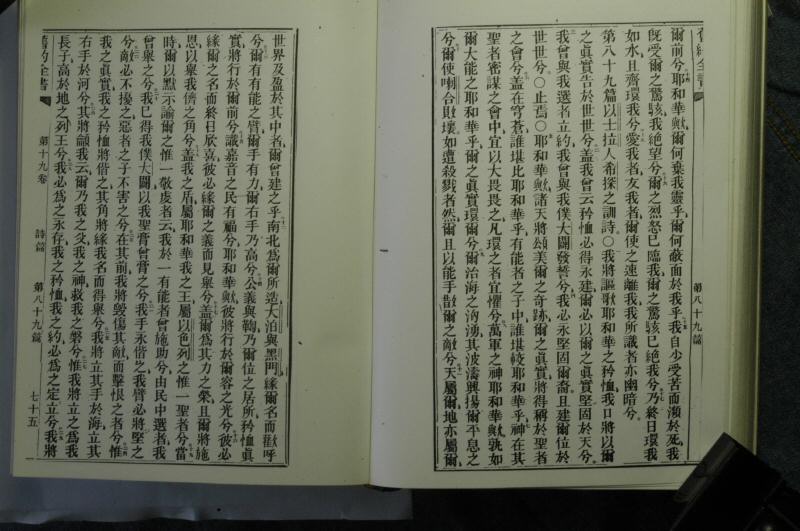 舊約全書
第八十九篇
爾前兮耶和華歟爾何棄我靈乎爾何蔽面於我乎我自少受苦而瀕於死我
旣受爾之驚駭我絕望兮爾之烈怒已臨我爾之驚駭已絕我兮乃終日環我
如水且齊環我兮愛我者友我者爾使之遠離我我所識者亦幽暗兮
第八十九篇以士拉人希探之訓詩○我將謳歌耶和華之矜恤我口將以爾
之眞實告於世世兮蓋我曾云矜恤必得永建爾必以爾之眞實堅固於天兮
我曾與我選者立約我曾與我僕大闢發誓兮我必永堅固爾裔且建爾位於
世世兮○止焉○耶和華歟諸天將頌美爾之奇跡爾之眞實將得稱於聖者
之會兮蓋在穹蒼誰堪比耶和華乎有能者之子中誰堪較耶和華乎神在其
聖者密謀之會中宜以大畏畏之凡環之者宜懼兮萬軍之神耶和華歟孰如
爾大能之耶和華乎爾之眞實環爾兮爾治海之洶湧其波濤興揚爾平息之
兮爾使喇合敗壞如遭殺戮者然爾且以能手散爾之敵兮天屬爾地亦屬爾
世界及盈於其中者爾曾建之乎南北爲爾所造大泊與黑門緣爾名而歡呼
兮爾有有能之臂爾手有力爾右手乃高兮公義與鞫乃爾位之居所矜恤眞
實將行於爾前兮識嘉音之民有福兮耶和華歟彼將行於爾容之光兮彼必
緣爾之名而終日欣喜彼必緣爾之義而見舉兮蓋爾爲其力之榮且爾將施
恩以舉我儕之角兮蓋我之盾屬耶和華我之王屬以色列之惟一聖者兮當
時爾以默示諭爾之惟一敬虔者云我於一有能者曾施助兮由民中選者我
曾舉之兮我已得我僕大闢以我聖膏曾膏之兮我手永偕之我臂必將堅之
兮敵必不擾之惡者之子不害之兮在其前我將毀傷其敵而擊恨之者兮惟
我之眞實我之矜恤將偕之其角將緣我名而得舉兮我將立其手於海立其
右手於河兮其將籲我云爾乃我之父我之神救我之磐兮惟我將立之爲我
長子高於地之列王兮我必爲之永存我之矜恤我之約必爲之定立兮我將
舊約全書
第十九卷
詩篇
第八十九篇
七十五